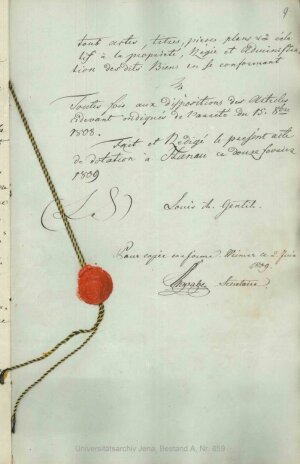 9
tous actes, titres, pièces plans &a rela-
tif à la propriété, Régie et Administra-
tion des dits Biens en se conformant
Toutes fois aux dispositions des Articles
cidevant rédigués de l'arrêté du 15. 8bre
1808.
Fait et Rédigé le présent acte
de dotation à Hanau ce douze fevrier
1809
(L. S.) Louis ch. Gentil.
Pour copie conforme Weimar ce 2. Juin
1809.
Secretaire
Universitätsarchiv Jena, Bestand A, Nr. 659